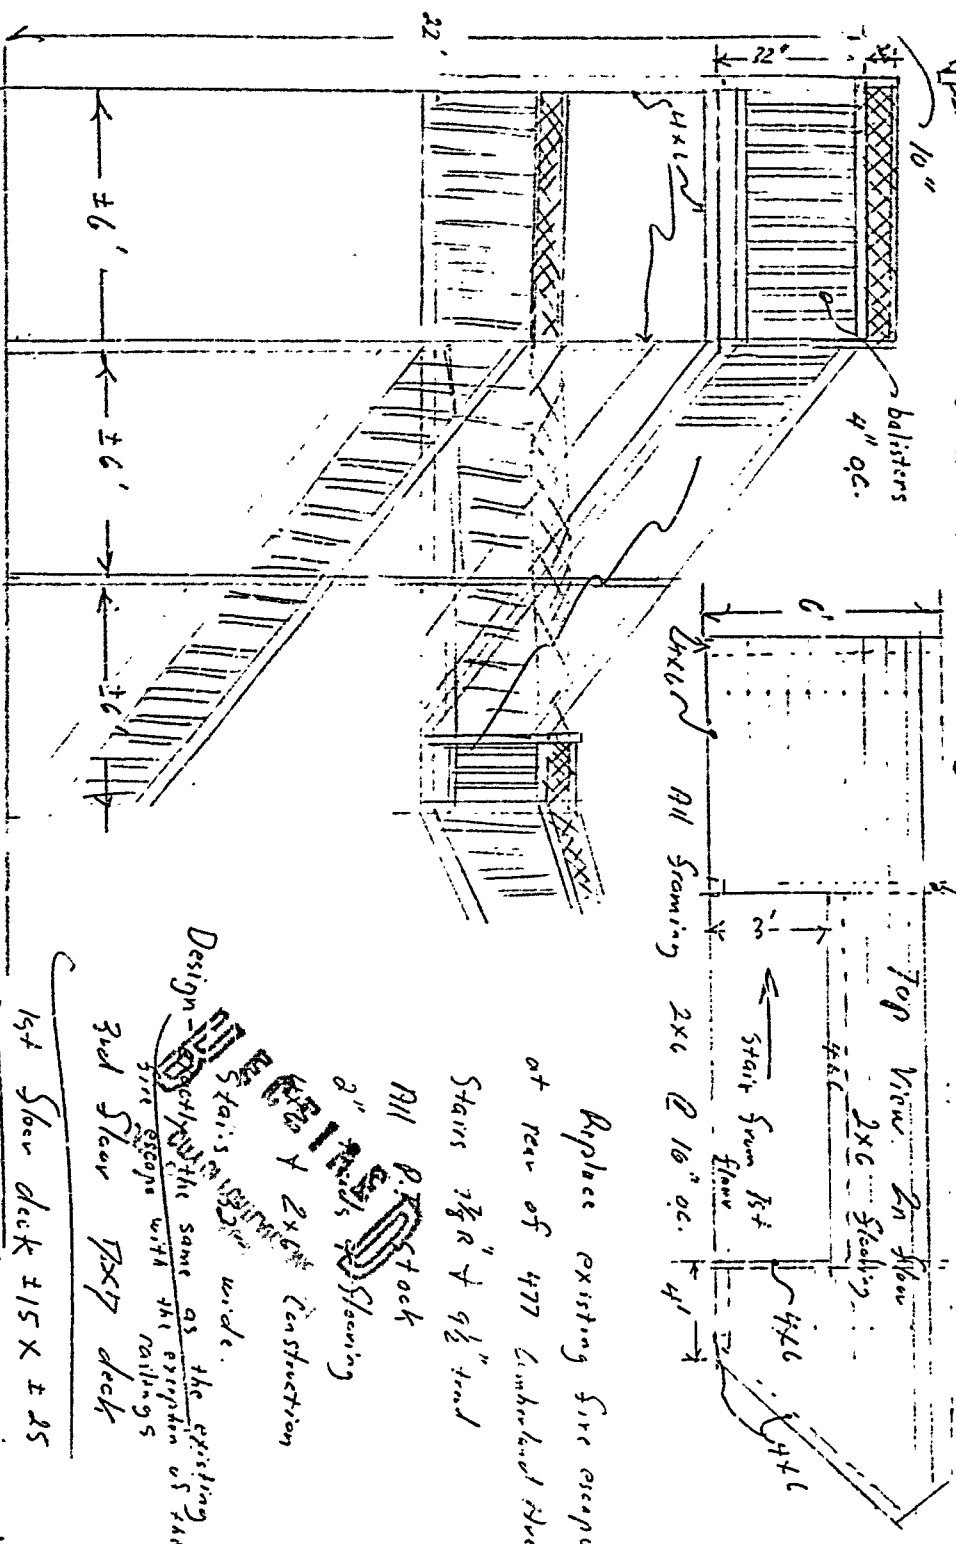 22'
32"
10"
4x6
balisters
4" o.c.
±6'
±6'
±6'
6'
4x6
All framing 2x6 @ 16" o.c.
3'
Top View 2n floor
2x6 flooling
4x6
stair from 1st
floor
4'
4x6
4x6
Replace existing fire escape
at rear of 477 Cumberland Ave
Stairs 7⅝" R & 9½" tread
All P.T. stock
2" treads & flooring
4x6 & 2x6 Construction
Stairs 32" wide.
Design - exactly the same as the existing
fire escape with the exception of the
railings
3rd floor 7x7 deck
1st floor deck ±15 x ±25
RECEIVED